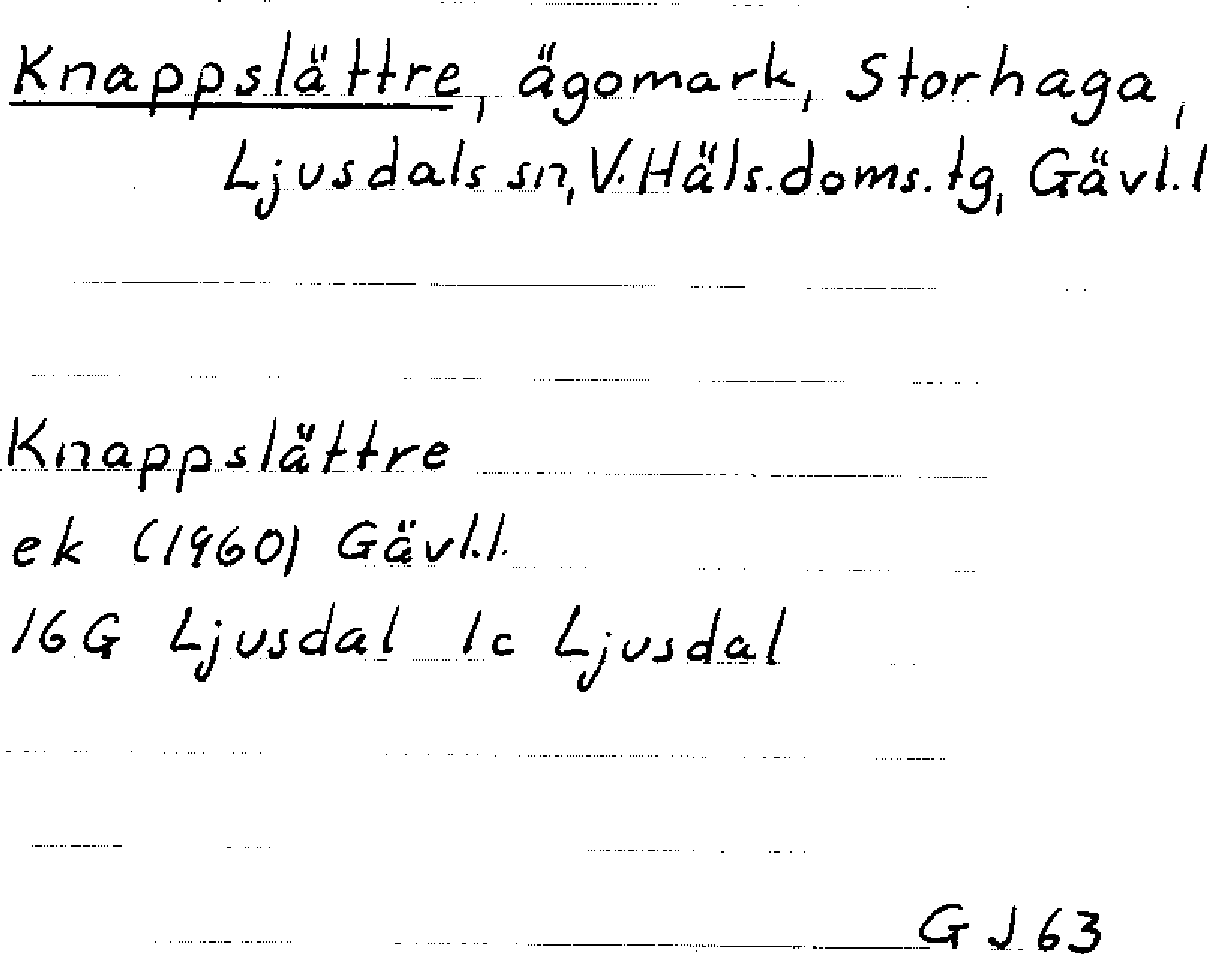 Knappslättre, ägomark, Storhaga,
Ljusdals sn, V. Häls. doms. tg, Gävl. l
Knappslättre
ek (1960) Gävl.l.
16G Ljusdal 1c Ljusdal
G J 63